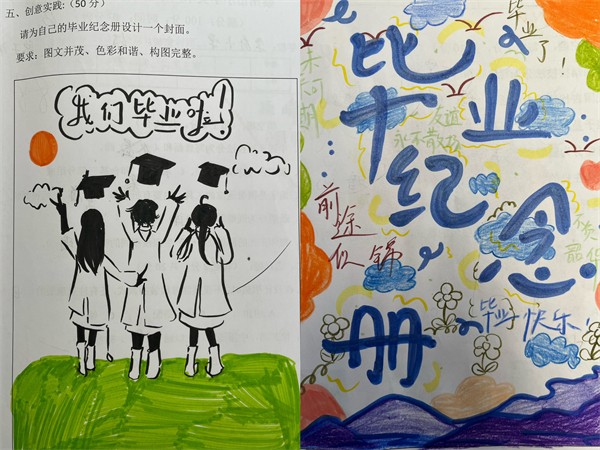 五、创意实践:(50分)
请为自己的毕业纪念册设计一个封面。
要求：图文并茂、色彩和谐、构图完整。
我们毕业啦!
毕业了!
毕业
纪念
册
友谊
永不散场
前途
似锦
毕业快乐!